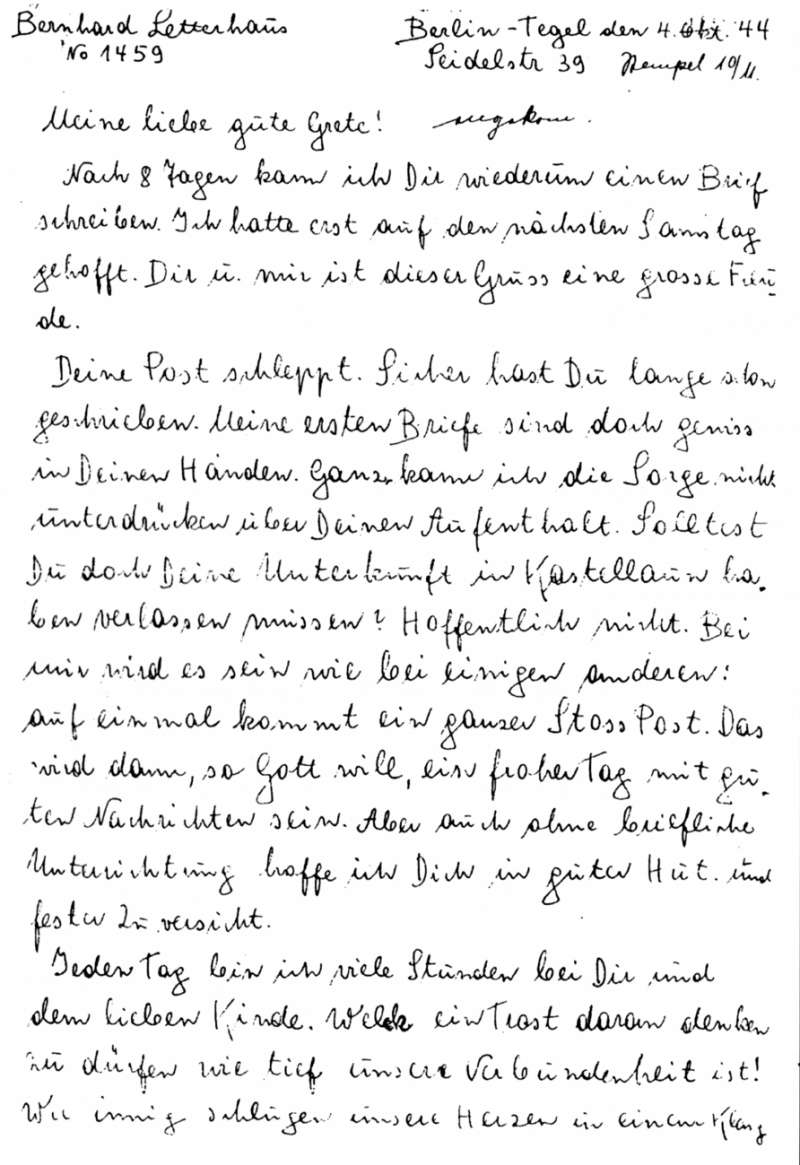 Bernhard Letterhaus
No 1459
Berlin-Tegel den 4. Okt. 44
Seidelstr 39 Stempel 10/11.
Meine liebe gute Grete!
Nach 8 Tagen kann ich Dir wiederum einen Brief
schreiben. Ich hatte erst auf den nächsten Samstag
gehofft. Dir u. mir ist dieser Gruss eine grosse Freu-
de.
Deine Post schleppt. Sicher hast Du lange schon
geschrieben. Meine ersten Briefe sind doch gewiss
in Deinen Händen. Ganz kann ich die Sorge nicht
unterdrücken über Deinen Aufenthalt. Solltest
Du doch Deine Unterkunft in Kastellaun ha-
ben verlassen müssen? Hoffentlich nicht. Bei
mir wird es sein wie bei einigen anderen:
auf einmal kommt ein ganzer Stoss Post. Das
wird dann, so Gott will, ein froher Tag mit gu-
ten Nachrichten sein. Aber auch ohne briefliche
Unterrichtung hoffe ich Dich in guter Hut und
fester Zuversicht.
Jeden Tag bin ich viele Stunden bei Dir und
dem lieben Kinde. Welch ein Trost daran denken
zu dürfen wie tief unsere Verbundenheit ist!
Wie innig schlugen unsere Herzen in einem Klang